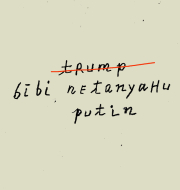 tRump
bibi nEtanyaHu
putin